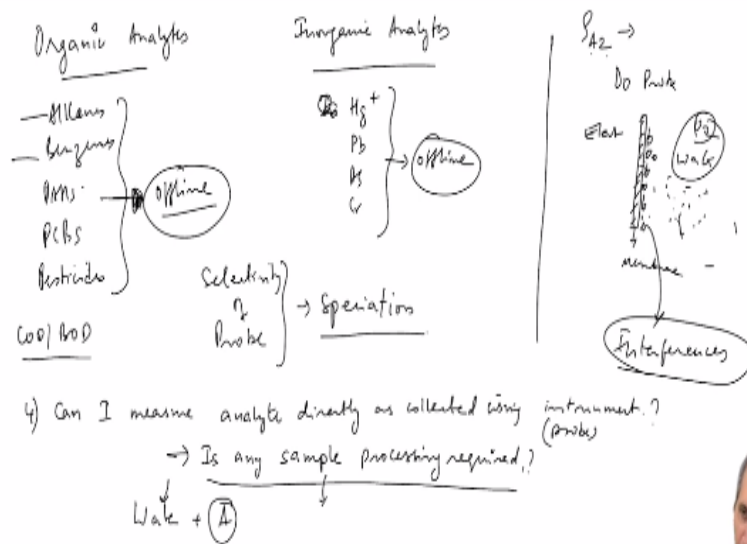 Organic Analytes
Alkanes
Benzenes
PAHs
PCBs
Pesticides
offline
COD/BOD
Inorganic Analytes
Hg+
Pb
As
Cr
offline
Selectivity
of
Probe
→ Speciation
ρA2 →
DO Probe
O2
Water
membrane
Interferences
4) Can I measure analyte directly as collected using instrument?
(probe)
→ Is any sample processing required?
Water + A